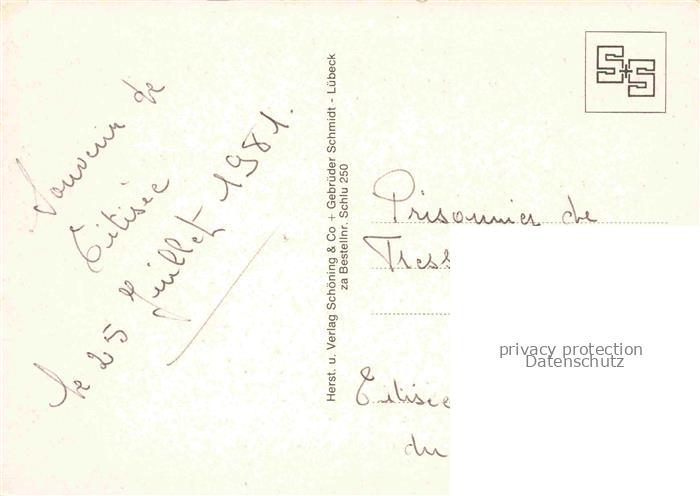 Souvenir de
Titisée
le 25 Juillet 1981.
Herst. u. Verlag Schöning & Co + Gebrüder Schmidt - Lübeck
za Bestellnr. Schlu 250
S+S
Prisonnier de
Tress
Titisée
du
privacy protection
Datenschutz